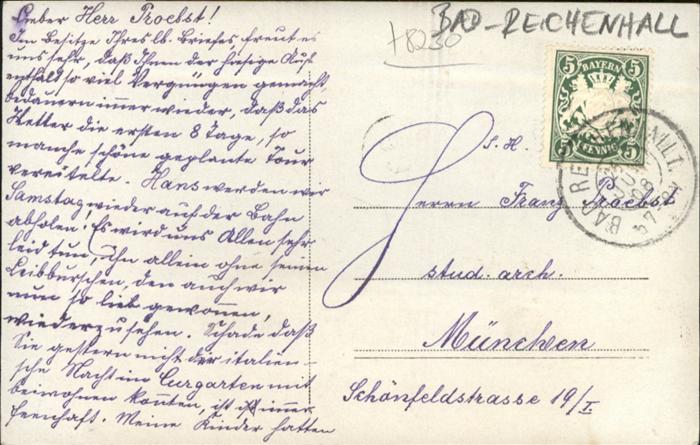 Lieber Herr Troebst!
Im Besitze Ihres lb. Briefes, freut es
uns sehr, daß Ihnen der hiesige Auf-
enthalt so viel Vergnügen gemacht,
bedauern immer wieder, daß das
Wetter die ersten 8 Tage, so
manche schöne geplante Tour
vereitelte. Hans werden wir
Samstag wieder auf der Bahn
abholen! Es wird uns Allen sehr
leid tun, Ihn allein ohne seinen
Leibburschen, den auch wir
nun so lieb gewonnen,
wiederzusehen. Schade daß
Sie gestern nicht der italien-
ische Nacht im Curgarten mit
beiwohnen konnten, ist immer
feenhaft. Meine Kinder hatten
BAD-REICHENHALL
+8230
5 BAYERN 5
5 PFENNIG 5
BAD REICHENHALL
JUL
08
S. H.
Herrn Franz Troebst
stud. arch.
München
Schönfeldstrasse 19/I.